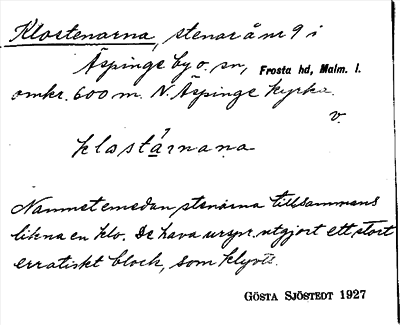 Klostenarna, stenar å nr 9 i
Äspinge by o. sn, Frosta hd, Malm. l.
omkr. 600 m. N. Äspinge kyrka.
v.
klostárnana
Namnet emedan stenarna tillsammans
likna en klo. De hava urspr. utgjort ett stort
erratiskt block, som kluvits.
GÖSTA SJÖSTEDT 1927